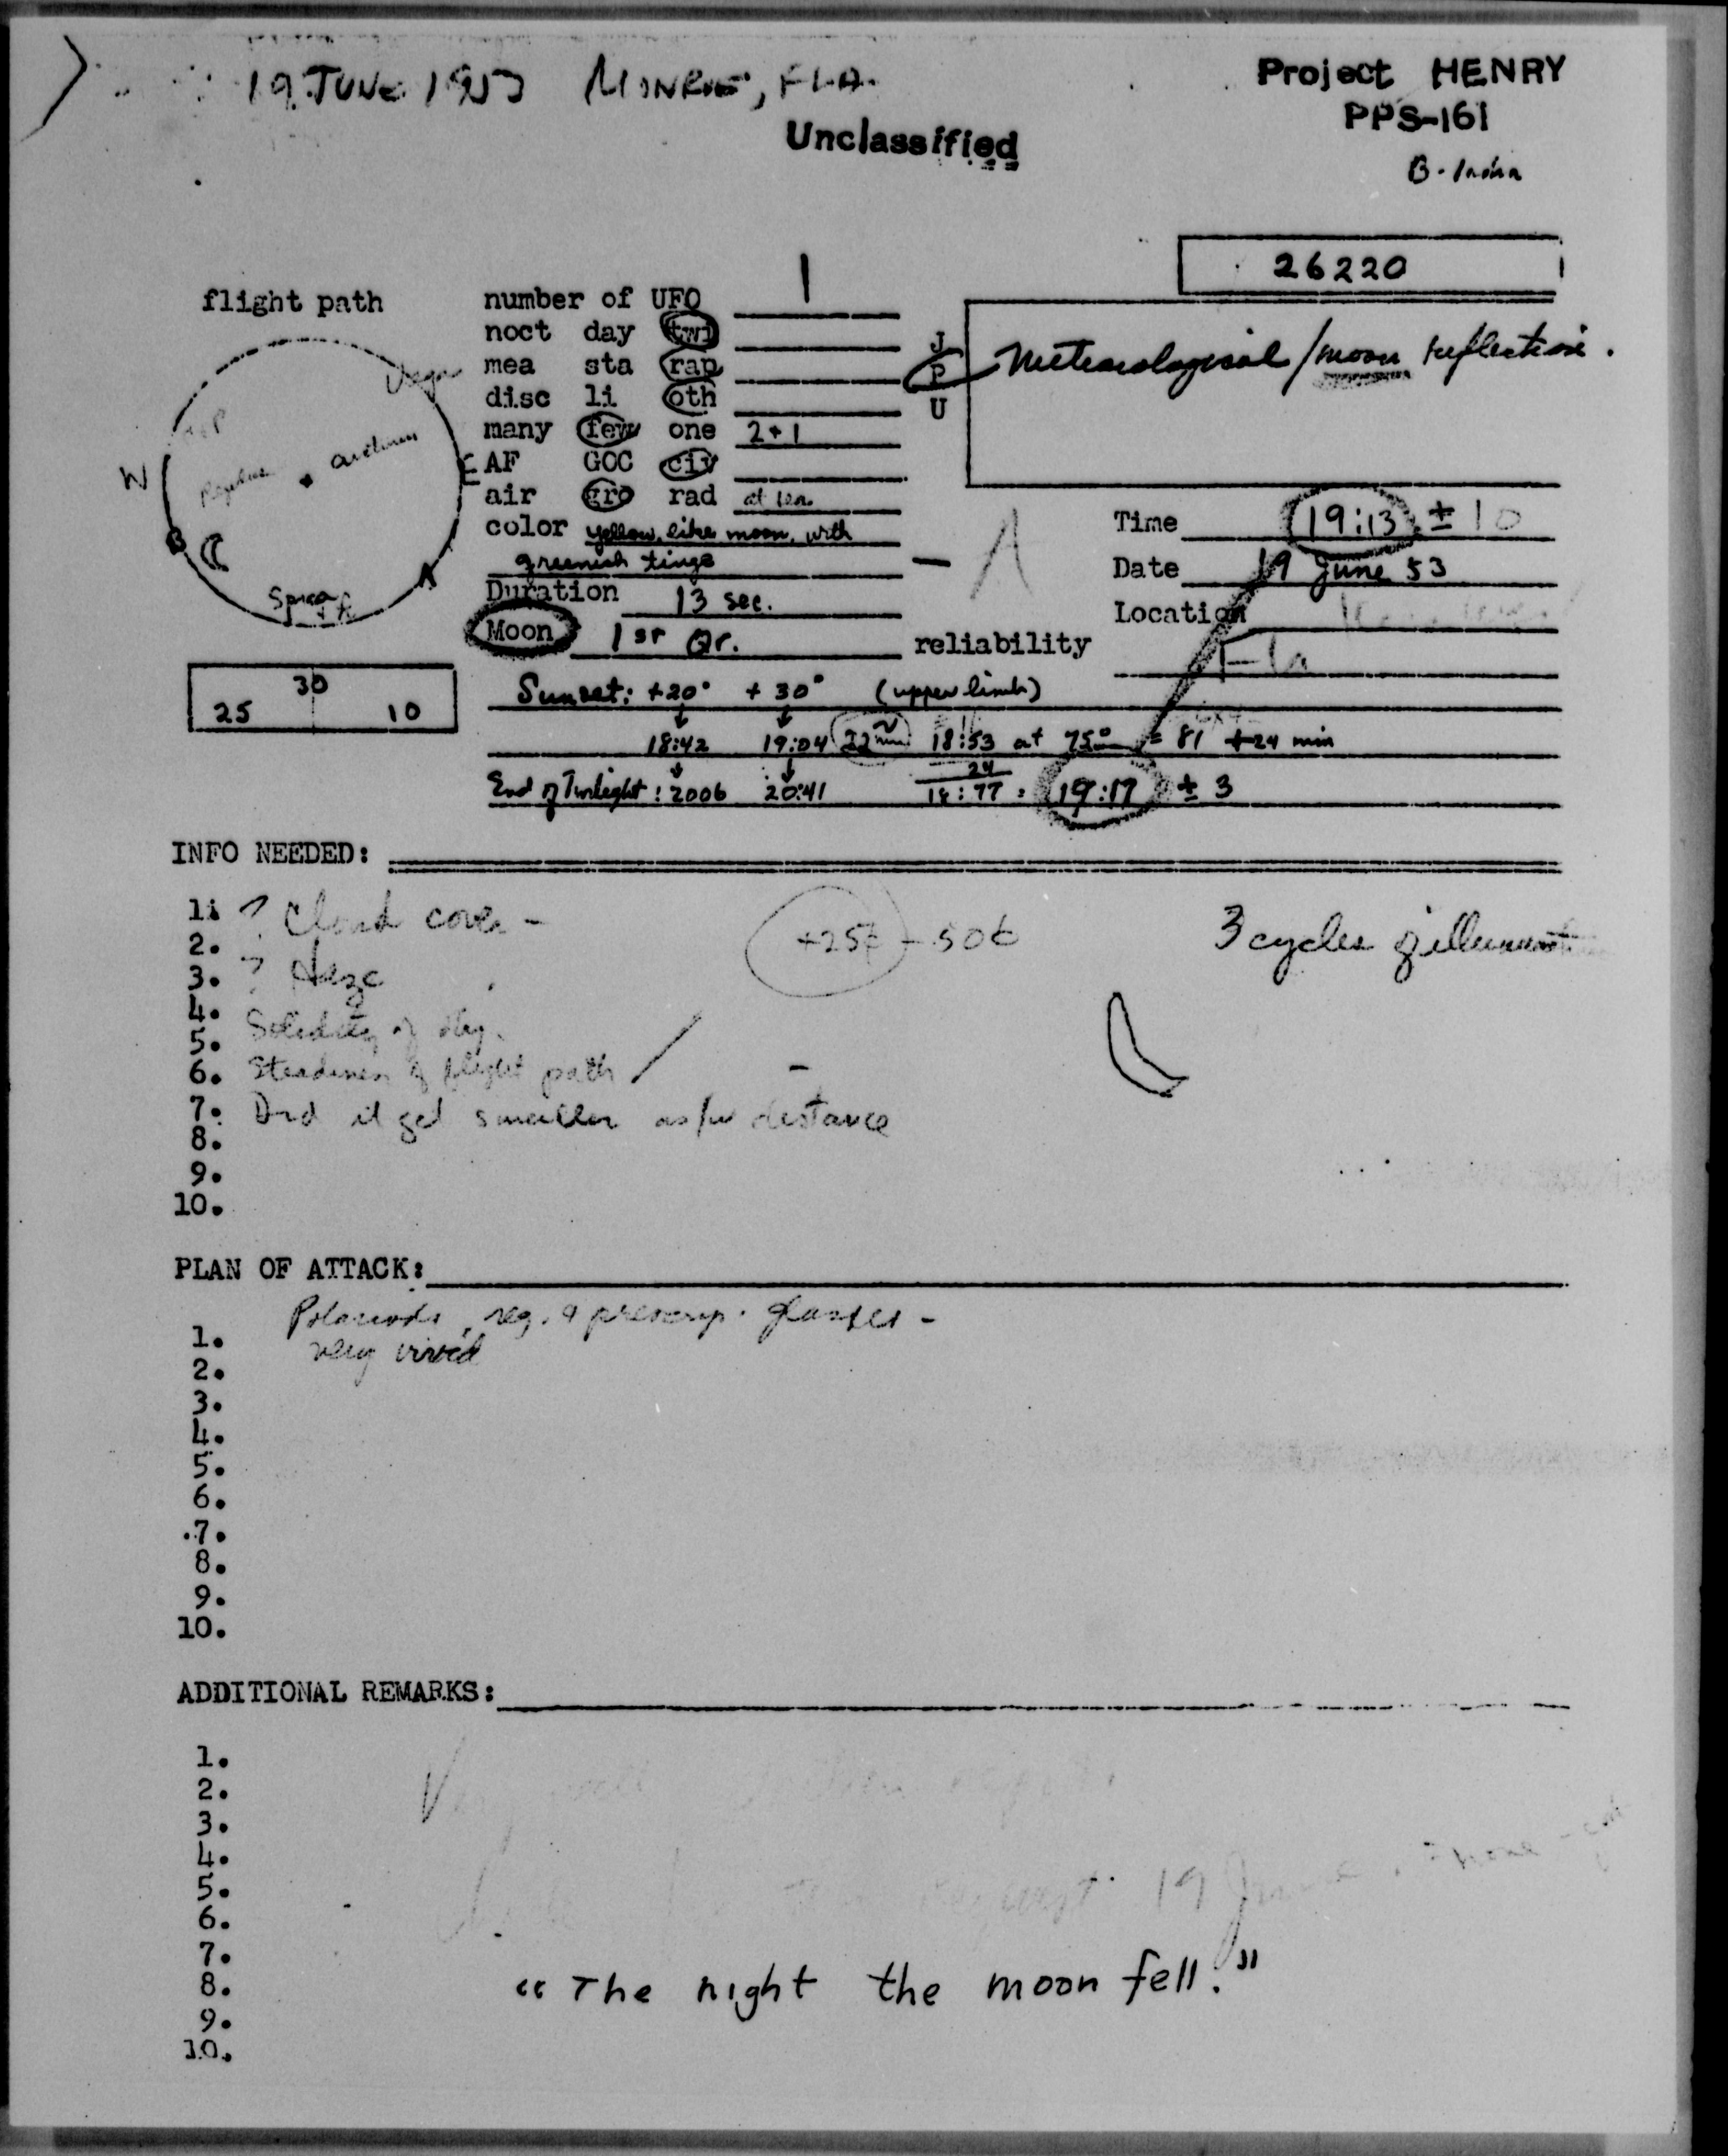 19 JUNE 1953 MONROE, FLA.
Project HENRY
PPS-161
Unclassified
26220
flight path
number of UFO 1
noct day twi
mea sta rap
disc li oth
many few one 2+1
AF GOC civ
air gro rad at sea
color yellow, like moon, with
greenish tinge
Duration 13 sec.
Moon 1st Qr.
Vega
arcturus
W
E
B
Spica
A
J
P
U
Meteorological/moon reflection.
Time 19:13 ± 10
Date 19 June 53
Location
Fla
reliability
30
25 10
Sunset: +20° +30° (upper limb)
18:42 19:04 22 min 18:53 at 75° = 81 +24 min
24
End of Twilight: 2006 20:41 18:77 = 19:17 ± 3
INFO NEEDED:
1. ? Cloud cover -
+25¢ - 50¢
3 cycles of
2.
3. ? Haze
4.
5. Solidity of obj.
6. Steadiness of flight path /
7. Did it get smaller distance
8.
9.
10.
PLAN OF ATTACK:
Polaroids, reg. prescrip. glasses -
1. very vivid
2.
3.
4.
5.
6.
7.
8.
9.
10.
ADDITIONAL REMARKS:
1.
2.
3.
4.
5. 19
6.
7.
8. "The night the moon fell."
9.
10.